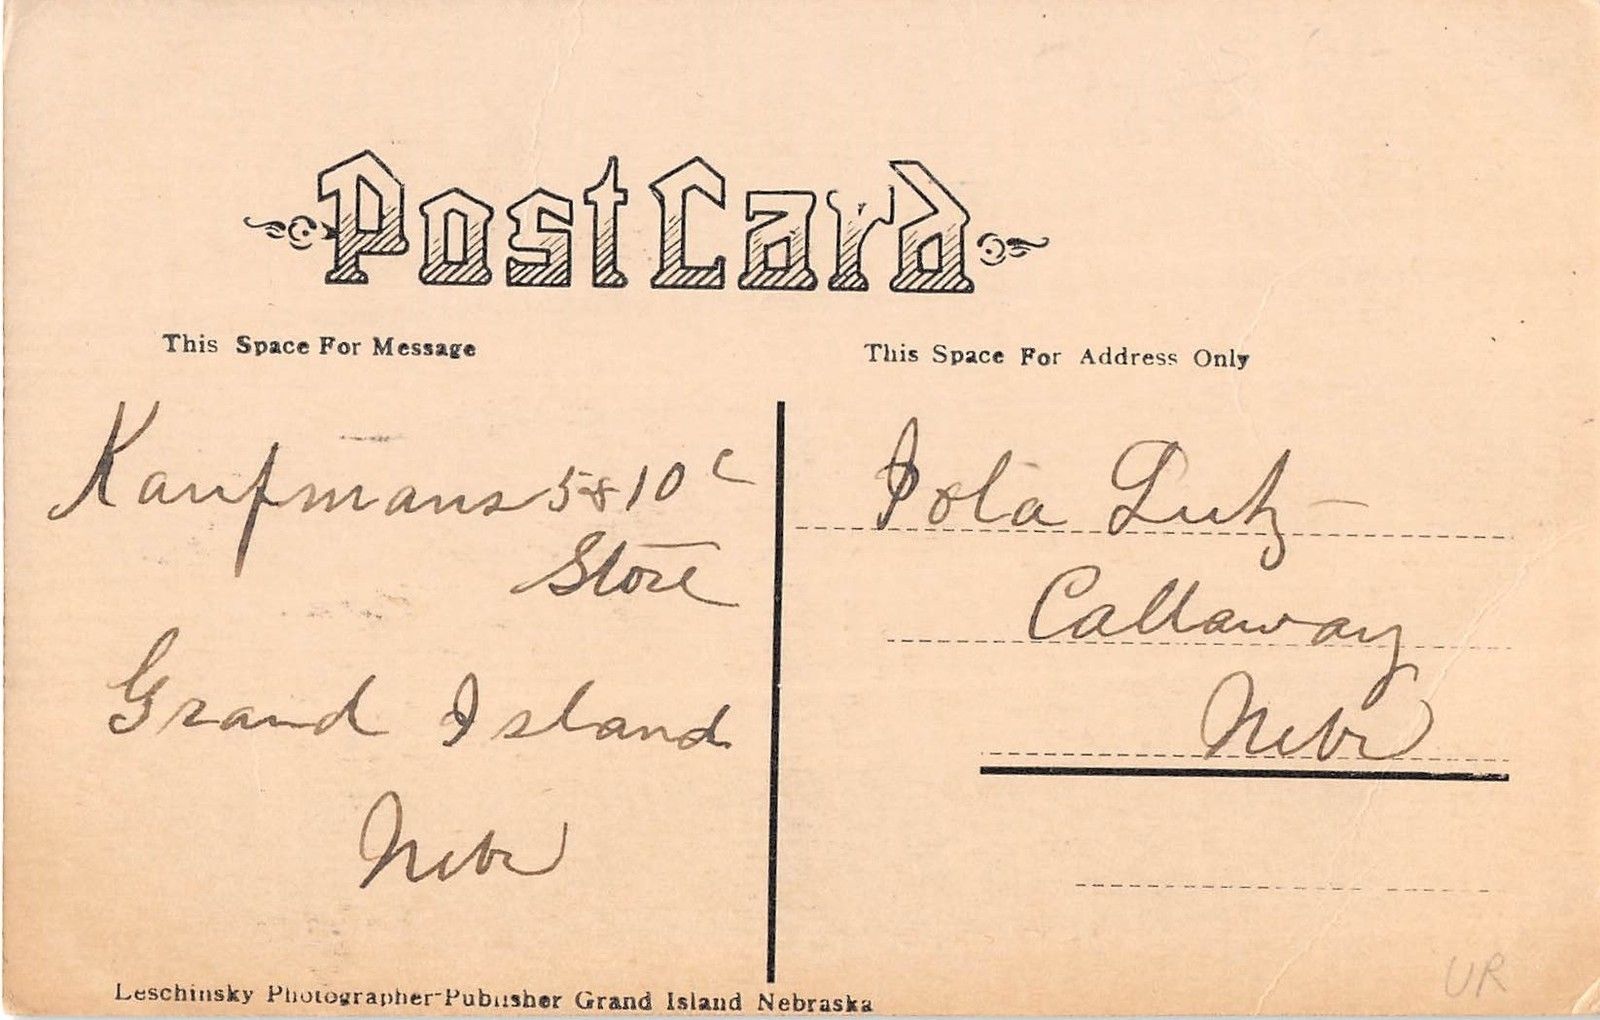 Post Card
This Space For Message
Kaufmans 5 & 10 c
Store
Grand Island
Nebr
This Space For Address Only
Iola Lutz
Callaway
Nebr
Leschinsky Photographer-Publisher Grand Island Nebraska
UR